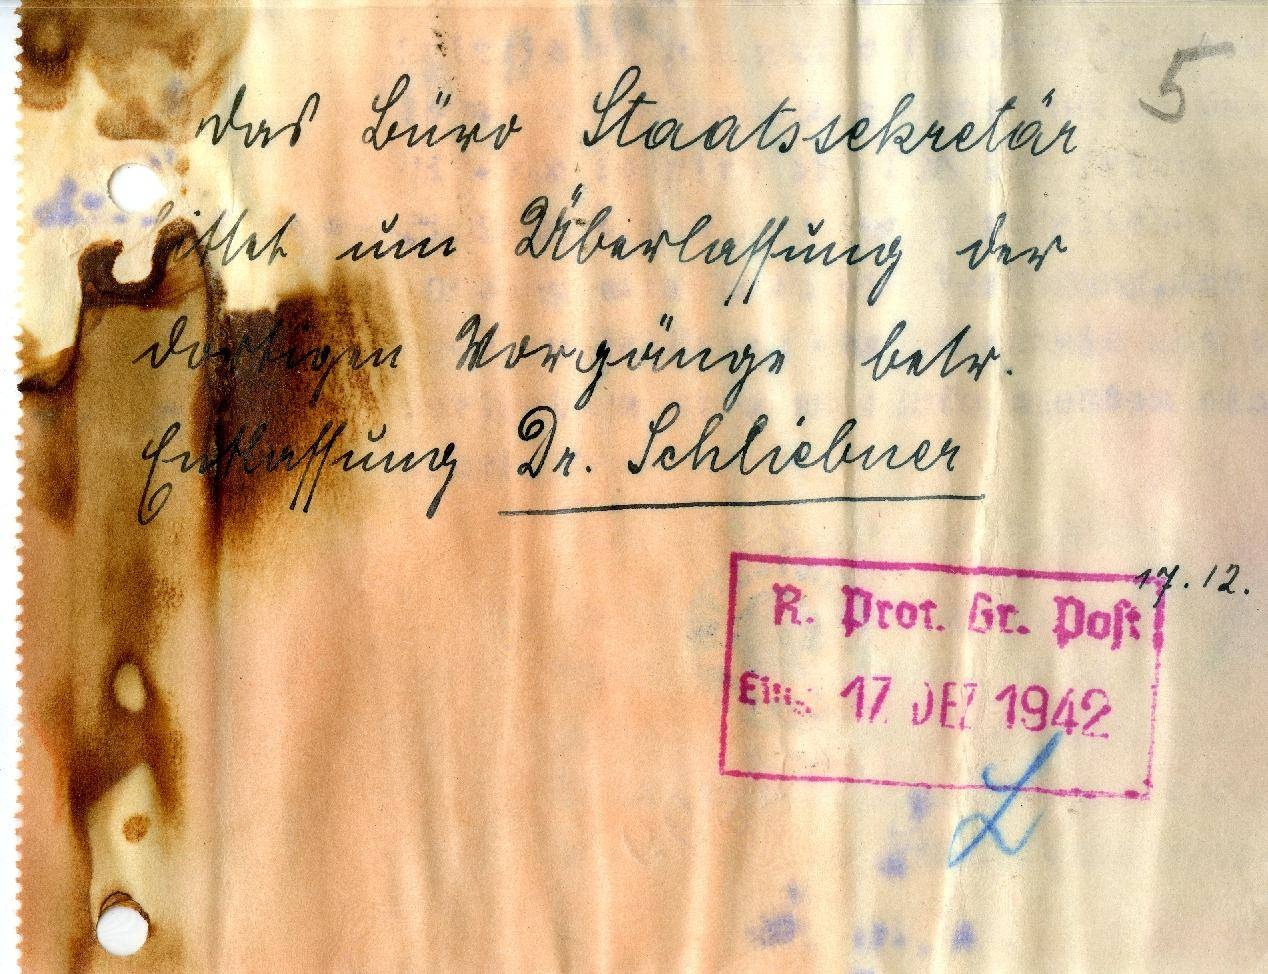 5
Das Büro Staatssekretär
bittet um Überlassung der
dortigen Vorgänge betr.
Entlassung Dr. Schliebner
17.12.
R. Prot. Gr. Post
Eing. 17 DEZ 1942
L